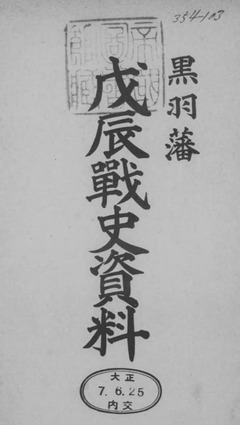 334-103
黒羽藩
戊辰戰史資料
大正
7. 6. 25
内交